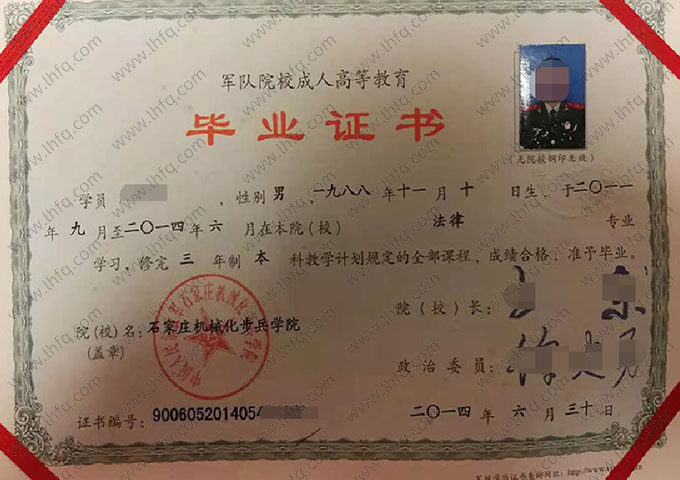 军队院校成人高等教育
毕业证书
(无院校钢印无效)
学员: ,性别 男,一九八八 年 十一 月 十 日生,于二〇一一
年 九 月至二〇一四年 六 月在本院(校) 法律 专业
学习,修完 三 年制 本 科教学计划规定的全部课程,成绩合格,准予毕业。
院(校)长:
院(校)名:石家庄机械化步兵学院
(盖章)
政治委员:
证书编号:9006052014054
二〇一四 年 六 月 三十 日
www.lhfq.com